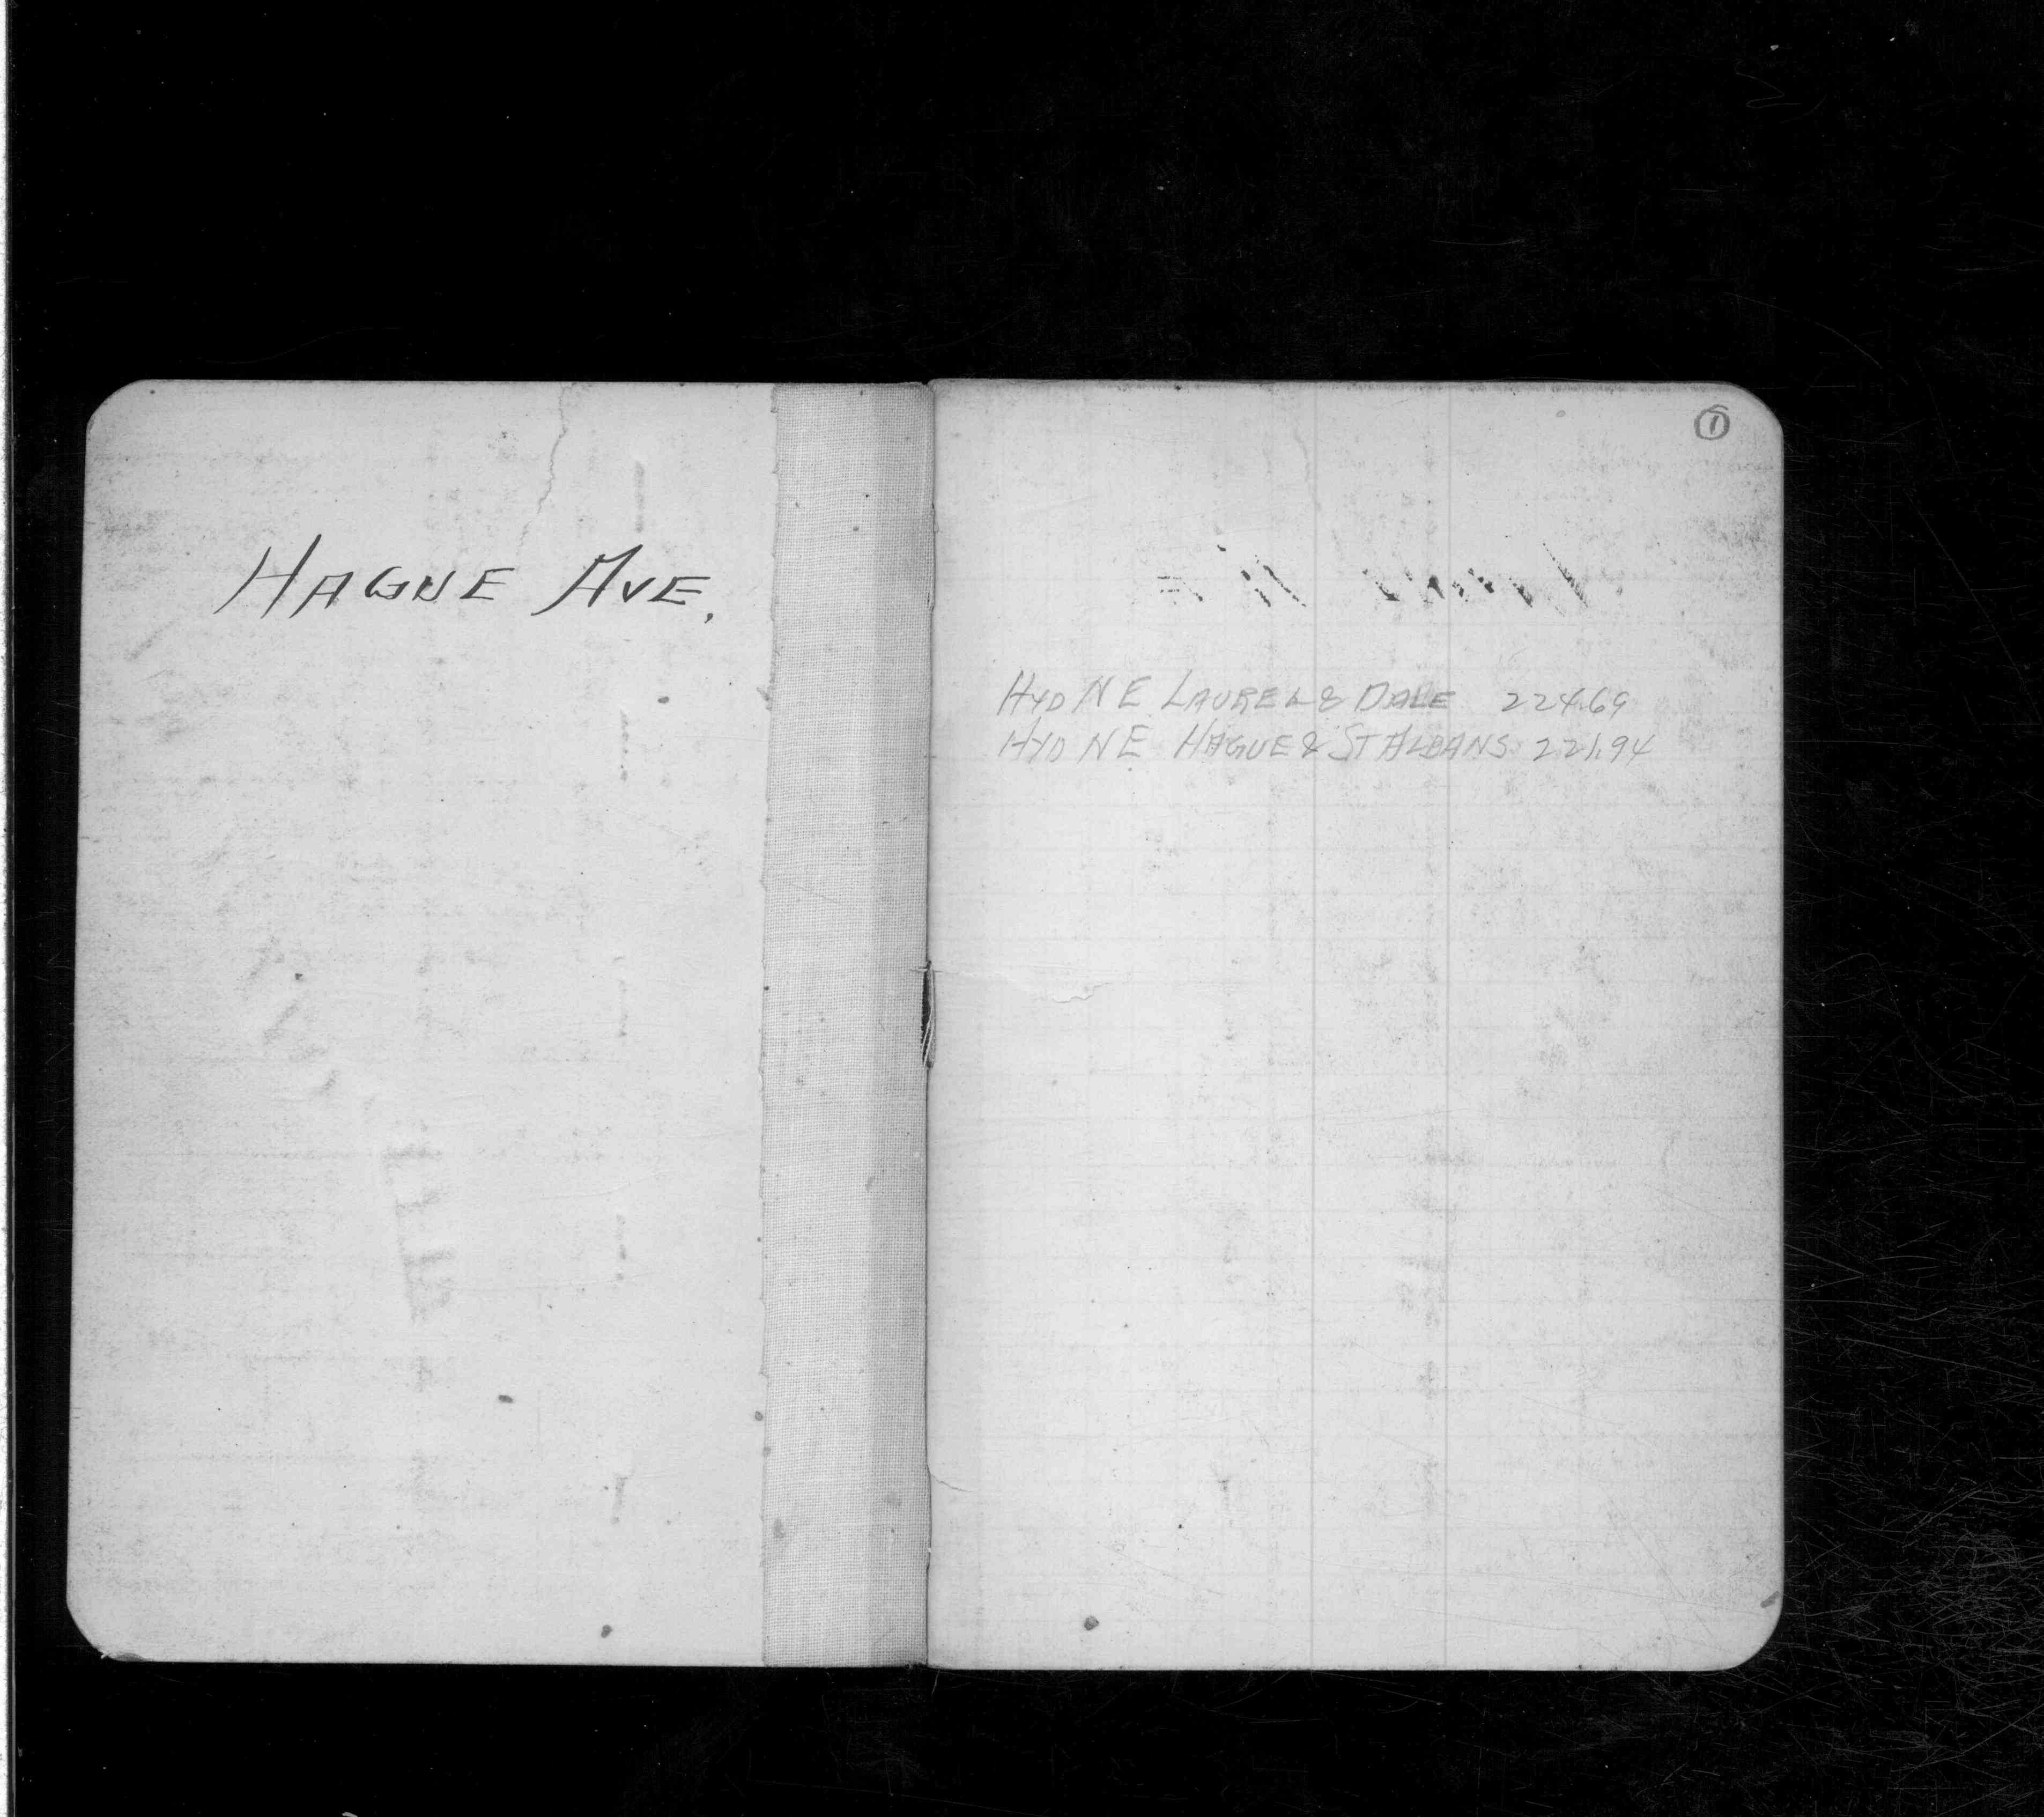 HAGUE AVE.
1
HYD NE LAUREL & DALE 224.69
HYD NE HAGUE & ST ALBANS 221.94